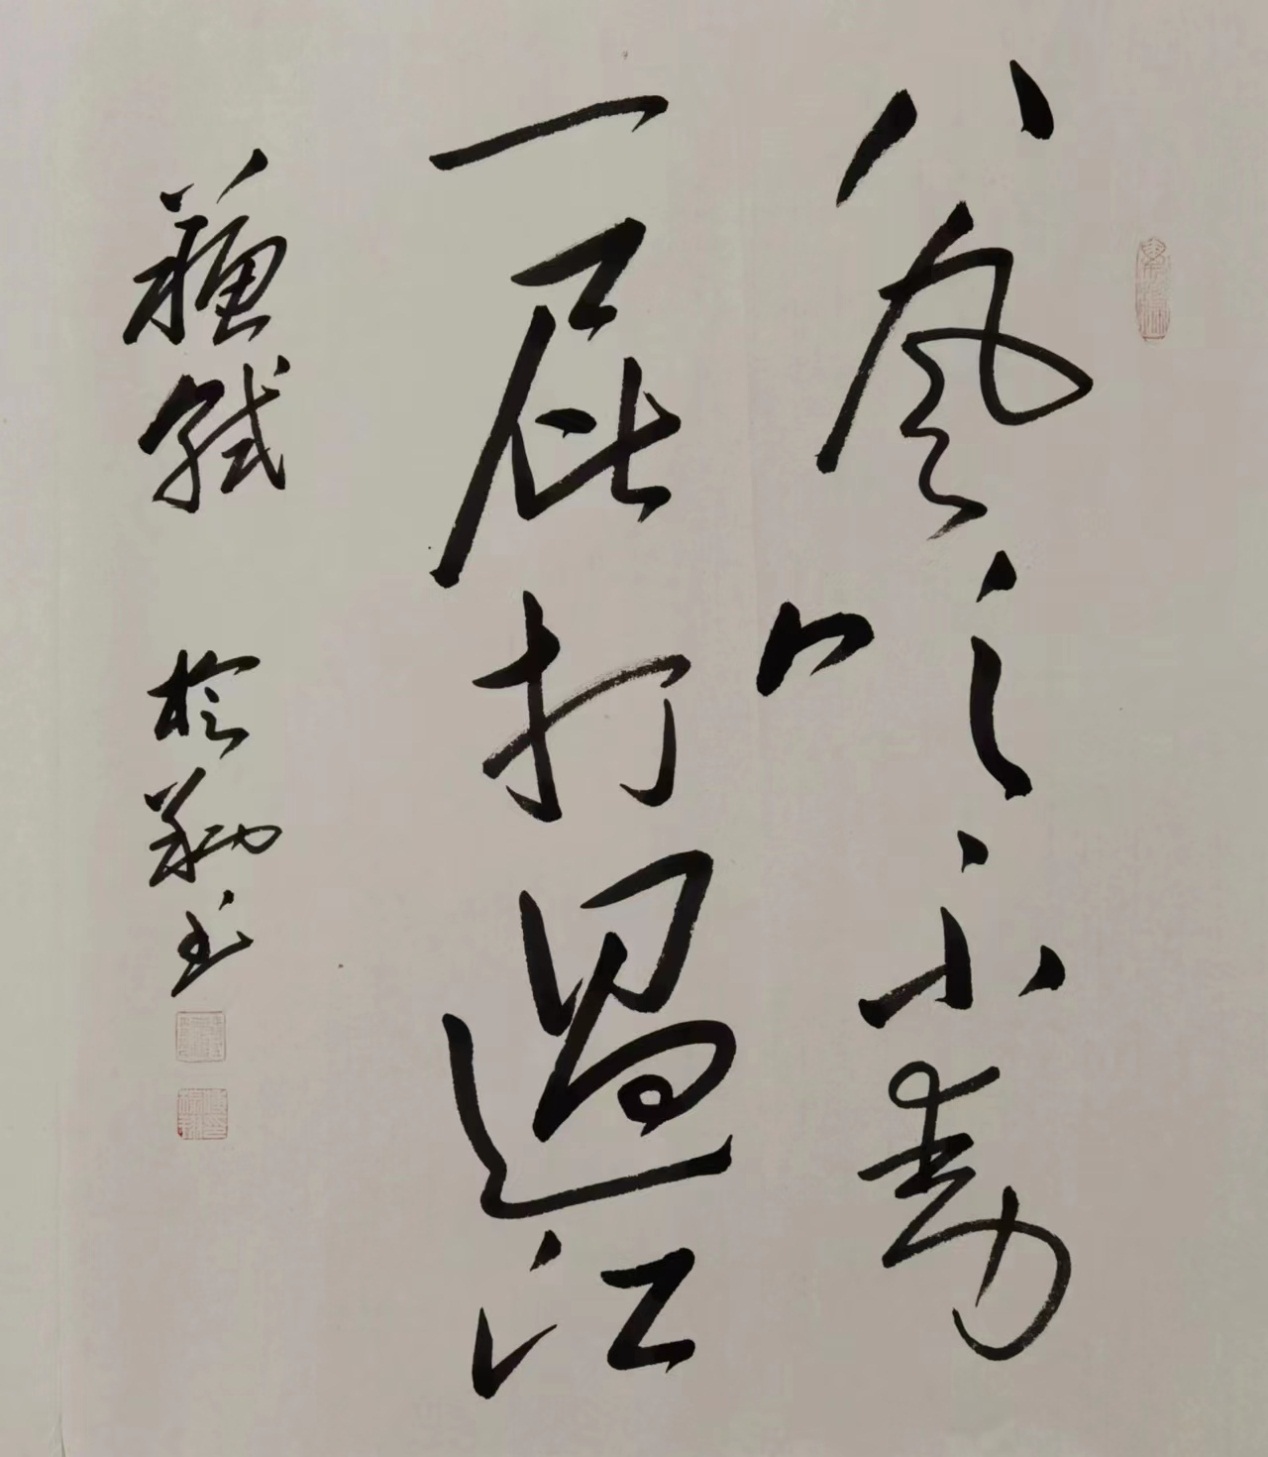 八風吹不動
一屁打過江
蘇軾 書